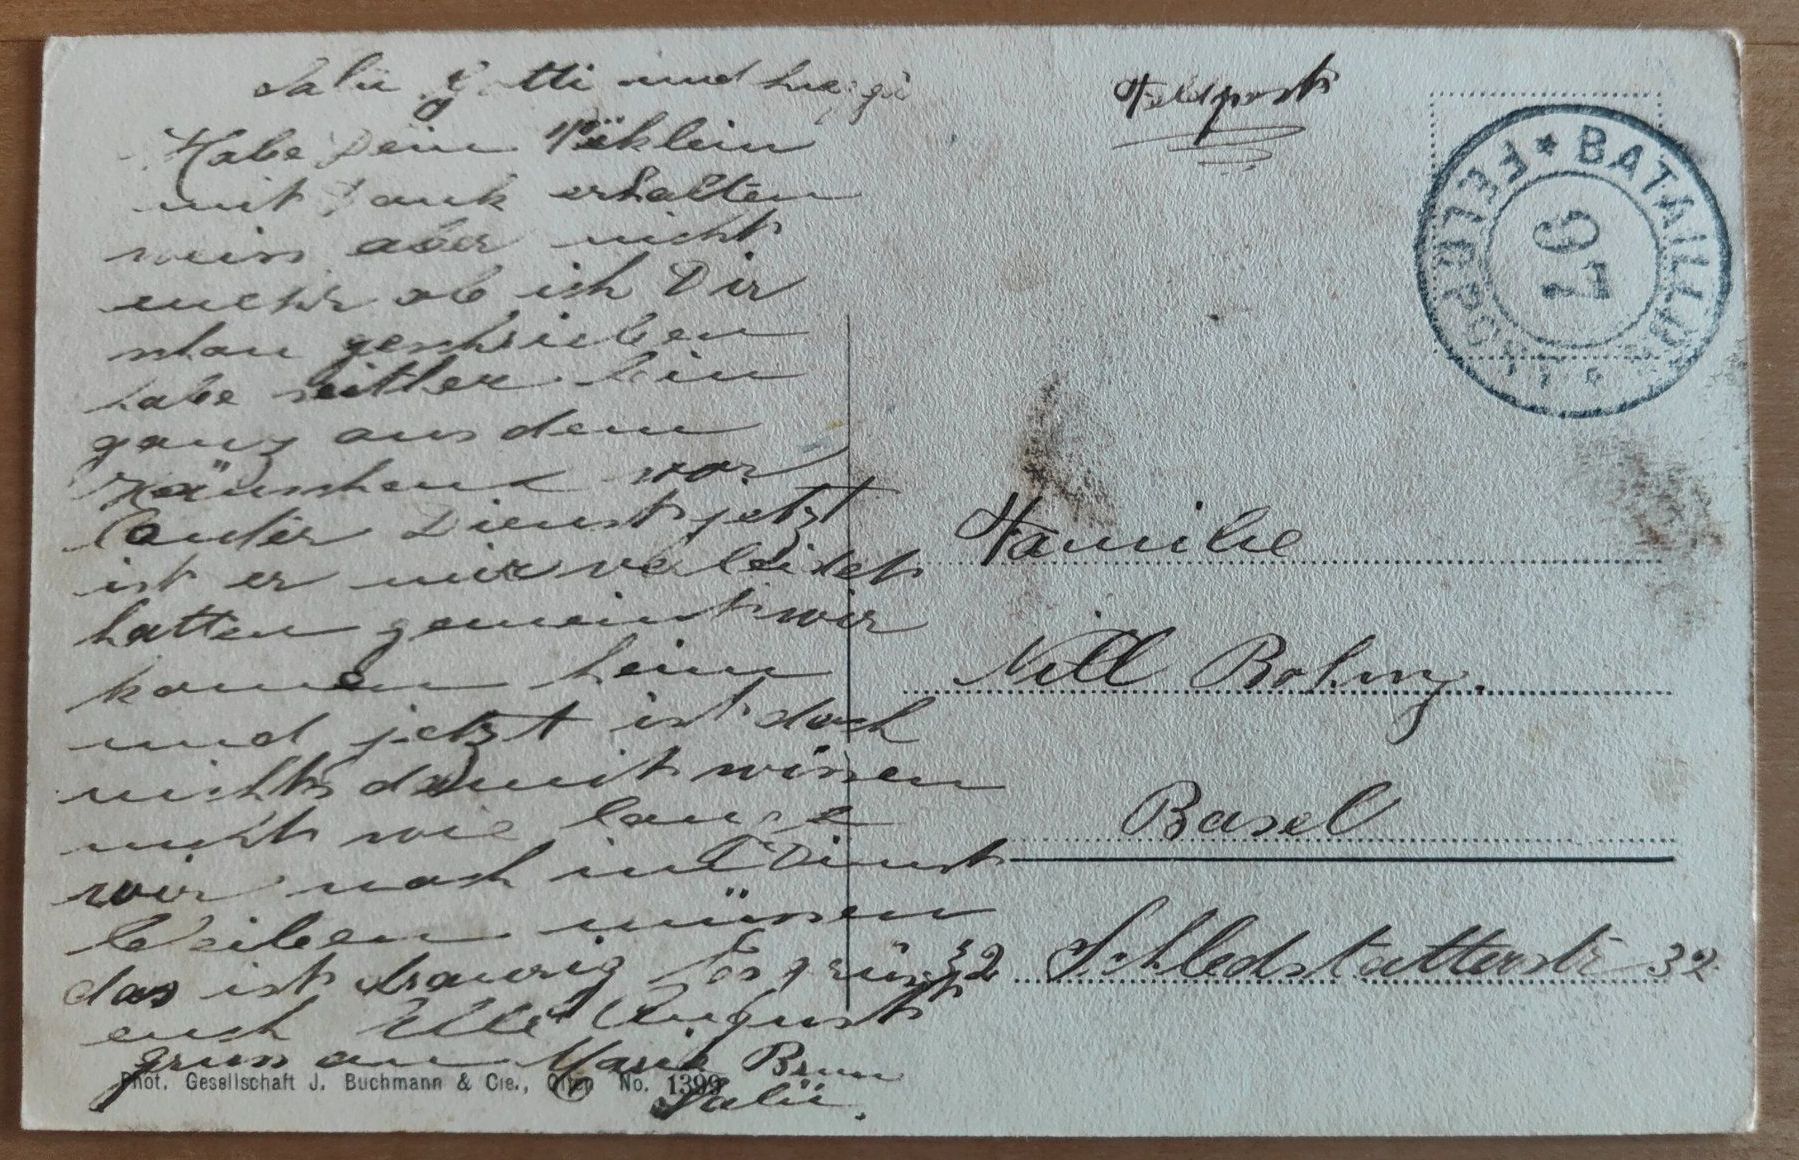 Salü Gotti und
Habe Dein Päklein
mit Dank erhalten
weiss aber nicht
mehr ob ich Dir
schon geschrieben
habe bin
ganz aus dem
Häuschen vor
Dienst jetzt
ist er mir verleidet
hatten gemeint wir
kommen heim
und jetzt ist doch
nichts damit wissen
nicht wie lange
wir noch im Dienst
bleiben müssen
das ist traurig Es grüsst
euch Alle August
gruss an Marie Brun
Salü.
Phot. Gesellschaft J. Buchmann & Cie., Olten No. 1399
Feldpost
FELDPOST * BATAILLON
97
Familie
Nill Bohny.
Basel
32 Schledstatterstr 32